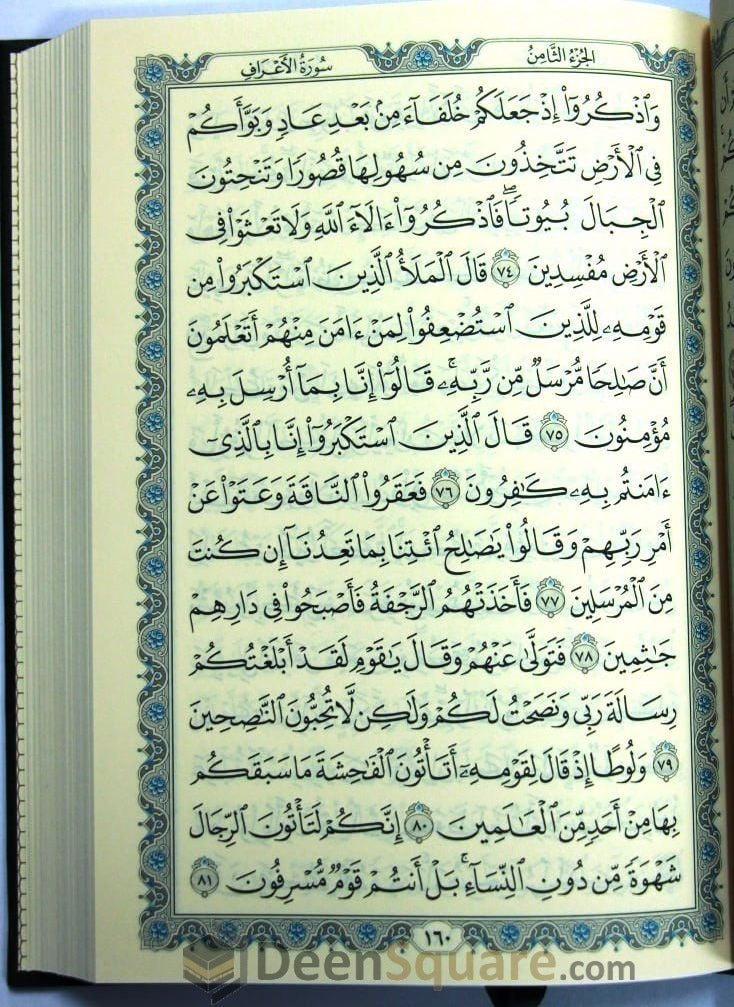 الجزء الثامن
سورة الأعراف
وَٱذْكُرُوٓا۟ إِذْ جَعَلَكُمْ خُلَفَآءَ مِنۢ بَعْدِ عَادٍ وَبَوَّأَكُمْ
فِى ٱلْأَرْضِ تَتَّخِذُونَ مِن سُهُولِهَا قُصُورًا وَتَنْحِتُونَ
ٱلْجِبَالَ بُيُوتًا ۖ فَٱذْكُرُوٓا۟ ءَالَآءَ ٱللَّهِ وَلَا تَعْثَوْا۟ فِى
ٱلْأَرْضِ مُفْسِدِينَ ٧٤ قَالَ ٱلْمَلَأُ ٱلَّذِينَ ٱسْتَكْبَرُوا۟ مِن
قَوْمِهِۦ لِلَّذِينَ ٱسْتُضْعِفُوا۟ لِمَنْ ءَامَنَ مِنْهُمْ أَتَعْلَمُونَ
أَنَّ صَٰلِحًا مُّرْسَلٌ مِّن رَّبِّهِۦ ۚ قَالُوٓا۟ إِنَّا بِمَآ أُرْسِلَ بِهِۦ
مُؤْمِنُونَ ٧٥ قَالَ ٱلَّذِينَ ٱسْتَكْبَرُوٓا۟ إِنَّا بِٱلَّذِىٓ
ءَامَنتُم بِهِۦ كَٰفِرُونَ ٧٦ فَعَقَرُوا۟ ٱلنَّاقَةَ وَعَتَوْا۟ عَنْ
أَمْرِ رَبِّهِمْ وَقَالُوا۟ يَٰصَٰلِحُ ٱئْتِنَا بِمَا تَعِدُنَآ إِن كُنتَ
مِنَ ٱلْمُرْسَلِينَ ٧٧ فَأَخَذَتْهُمُ ٱلرَّجْفَةُ فَأَصْبَحُوا۟ فِى دَارِهِمْ
جَٰثِمِينَ ٧٨ فَتَوَلَّىٰ عَنْهُمْ وَقَالَ يَٰقَوْمِ لَقَدْ أَبْلَغْتُكُمْ
رِسَالَةَ رَبِّى وَنَصَحْتُ لَكُمْ وَلَٰكِن لَّا تُحِبُّونَ ٱلنَّٰصِحِينَ
٧٩ وَلُوطًا إِذْ قَالَ لِقَوْمِهِۦٓ أَتَأْتُونَ ٱلْفَٰحِشَةَ مَا سَبَقَكُم
بِهَا مِنْ أَحَدٍ مِّنَ ٱلْعَٰلَمِينَ ٨٠ إِنَّكُمْ لَتَأْتُونَ ٱلرِّجَالَ
شَهْوَةً مِّن دُونِ ٱلنِّسَآءِ ۚ بَلْ أَنتُمْ قَوْمٌ مُّسْرِفُونَ ٨١
١٦٠
DeenSquare.com